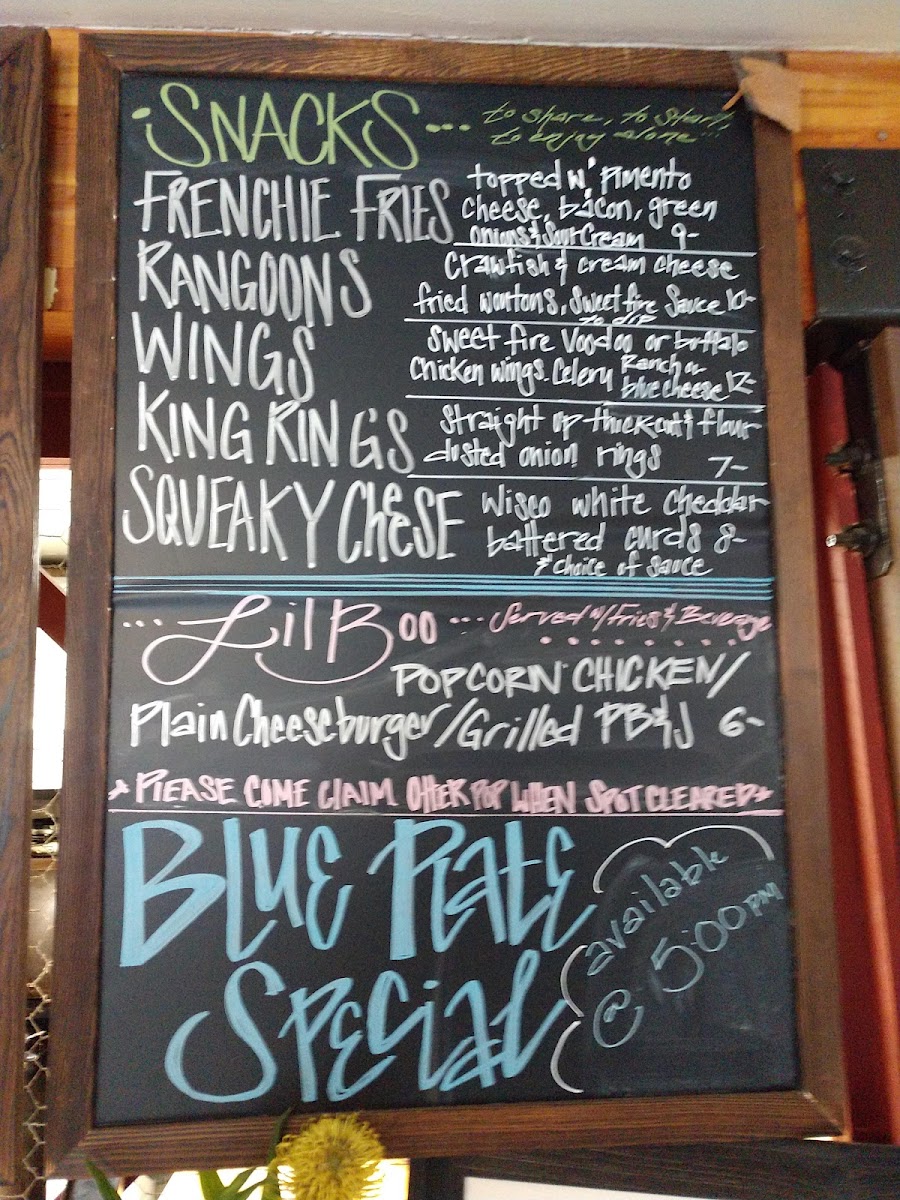 ·SNACKS... to share, to start,
to enjoy alone...
FRENCHIE FRIES topped w/ pimento
cheese, bacon, green
onions & Sour Cream 9-
RANGOONS Crawfish & cream cheese
fried wontons, sweet fire sauce 10-
to dip
WINGS sweet fire voodoo or buffalo
chicken wings. Celery Ranch or
blue cheese 12-
KING RINGS straight up thick cut & flour
dusted onion rings 7-
SQUEAKY CHEESE Wisco white cheddar
battered curds 8-
& choice of sauce
... Lil Boo ... Served w/ Fries & Beverage
POPCORN CHICKEN/
Plain Cheeseburger/Grilled PB&J 6-
*PLEASE COME CLAIM OTTER POP WHEN SPOT CLEARED*
BLUE PLATE
SPECIAL
available
@ 5:00 PM